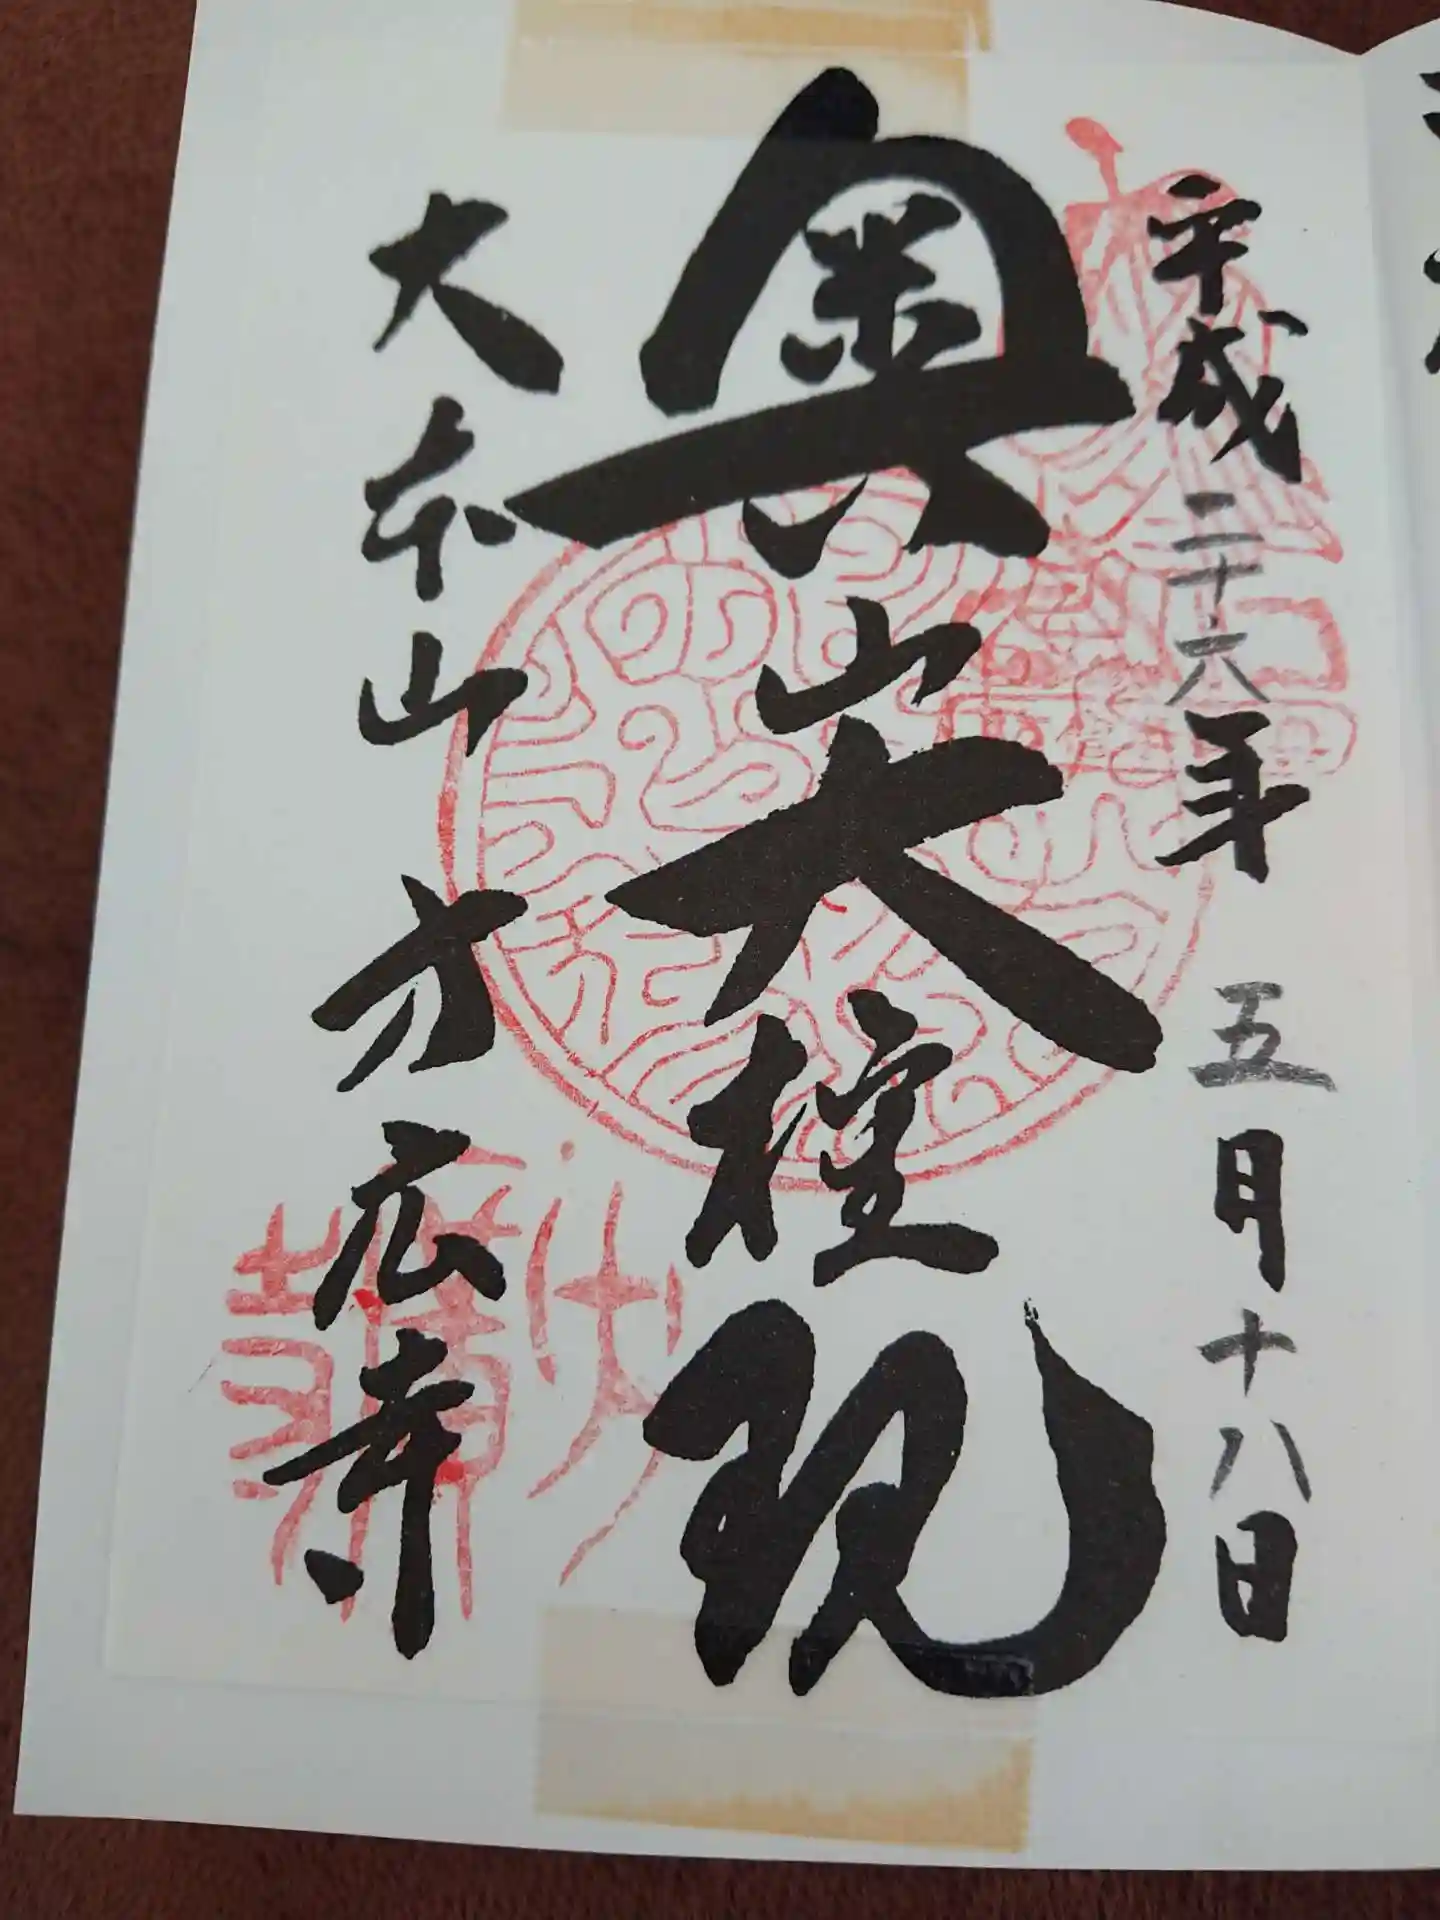 平成二十六年 五月十八日
奥山大権現
大本山方広寺